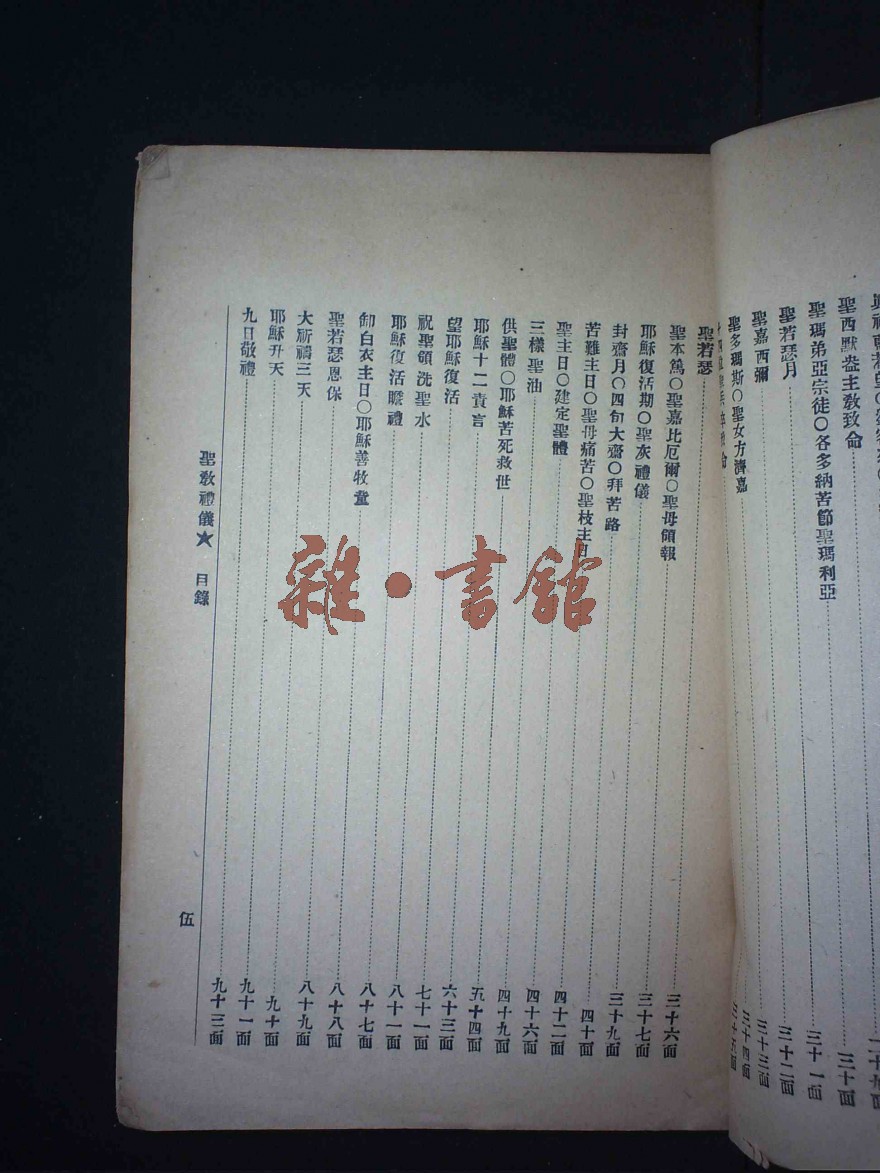 聖西默盎主教致命 三十面
聖瑪弟亞宗徒〇各多納苦節聖瑪利亞 三十一面
聖若瑟月 三十二面
聖嘉西彌 三十三面
聖多瑪斯〇聖女方濟嘉 三十四面
致命 三十五面
聖若瑟 三十六面
聖本篤〇聖嘉比厄爾〇聖母領報 三十七面
耶穌復活期〇聖灰禮儀 三十九面
封齋月〇四旬大齋〇拜苦路 四十面
苦難主日〇聖母痛苦〇聖枝主日 四十二面
聖主日〇建定聖體 四十六面
三樣聖油 四十九面
供聖體〇耶穌苦死救世 五十四面
耶穌十二責言 六十三面
望耶穌復活 七十一面
祝聖領洗聖水 八十一面
耶穌復活瞻禮 八十七面
卸白衣主日〇耶穌善牧童 八十八面
聖若瑟恩保 八十九面
大祈禱三天 九十面
耶穌升天 九十一面
九日敬禮 九十三面
聖教禮儀★ 目錄 伍
雜·書館